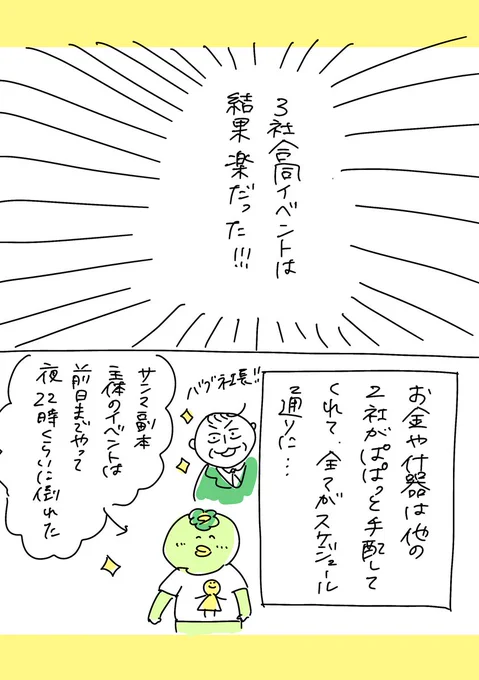 3社合同イベントは
結果楽だった!!!
お金や什器は他の
2社がぱぱっと手配して
くれて、全てがスケジュール
通りに…
バグ社長!!
サンマ副本
主体のイベントは
前日までやって
夜22時くらいに倒れた